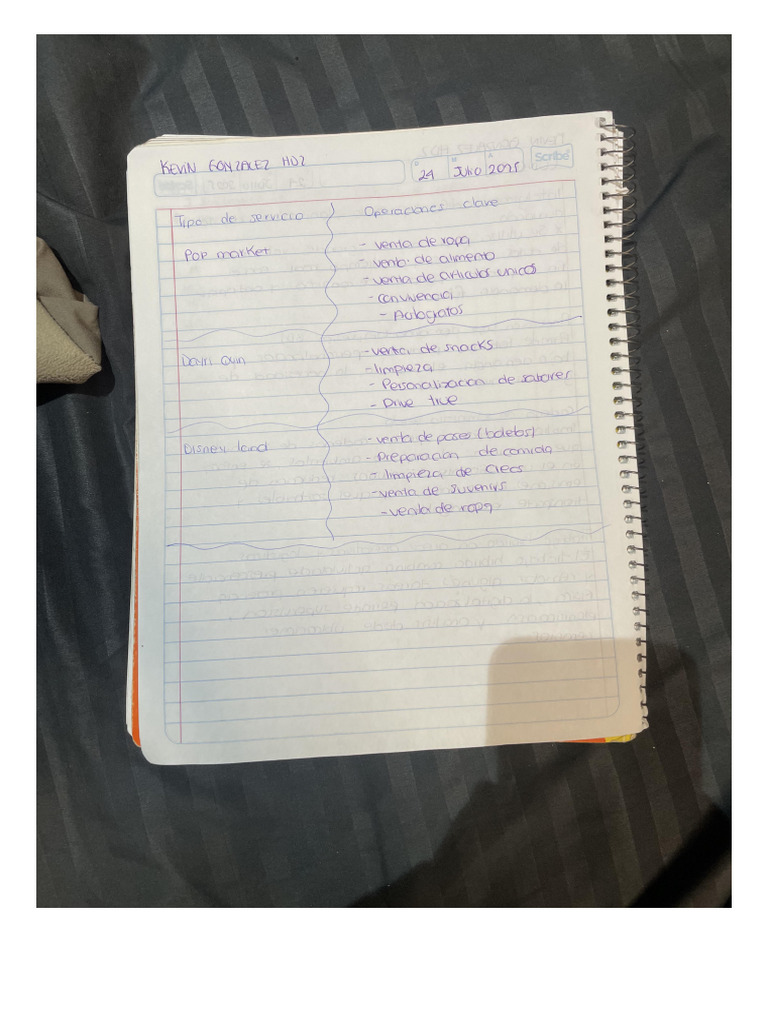 KEVIN GONZALEZ HDZ
24 Julio 2025
Scribe
Tipo de servicio
Operaciones clave
Pop market
- venta de ropa
- venta de alimento
- venta de articulos unicos
- convivencia
- Autografos
Dayri Quin
- venta de snacks
- limpieza
- Personalizacion de sabores
- Drive true
Disney land
- venta de pases (boletos)
- Preparacion de comida
- limpieza de areas
- venta de suvenirs
- venta de ropa